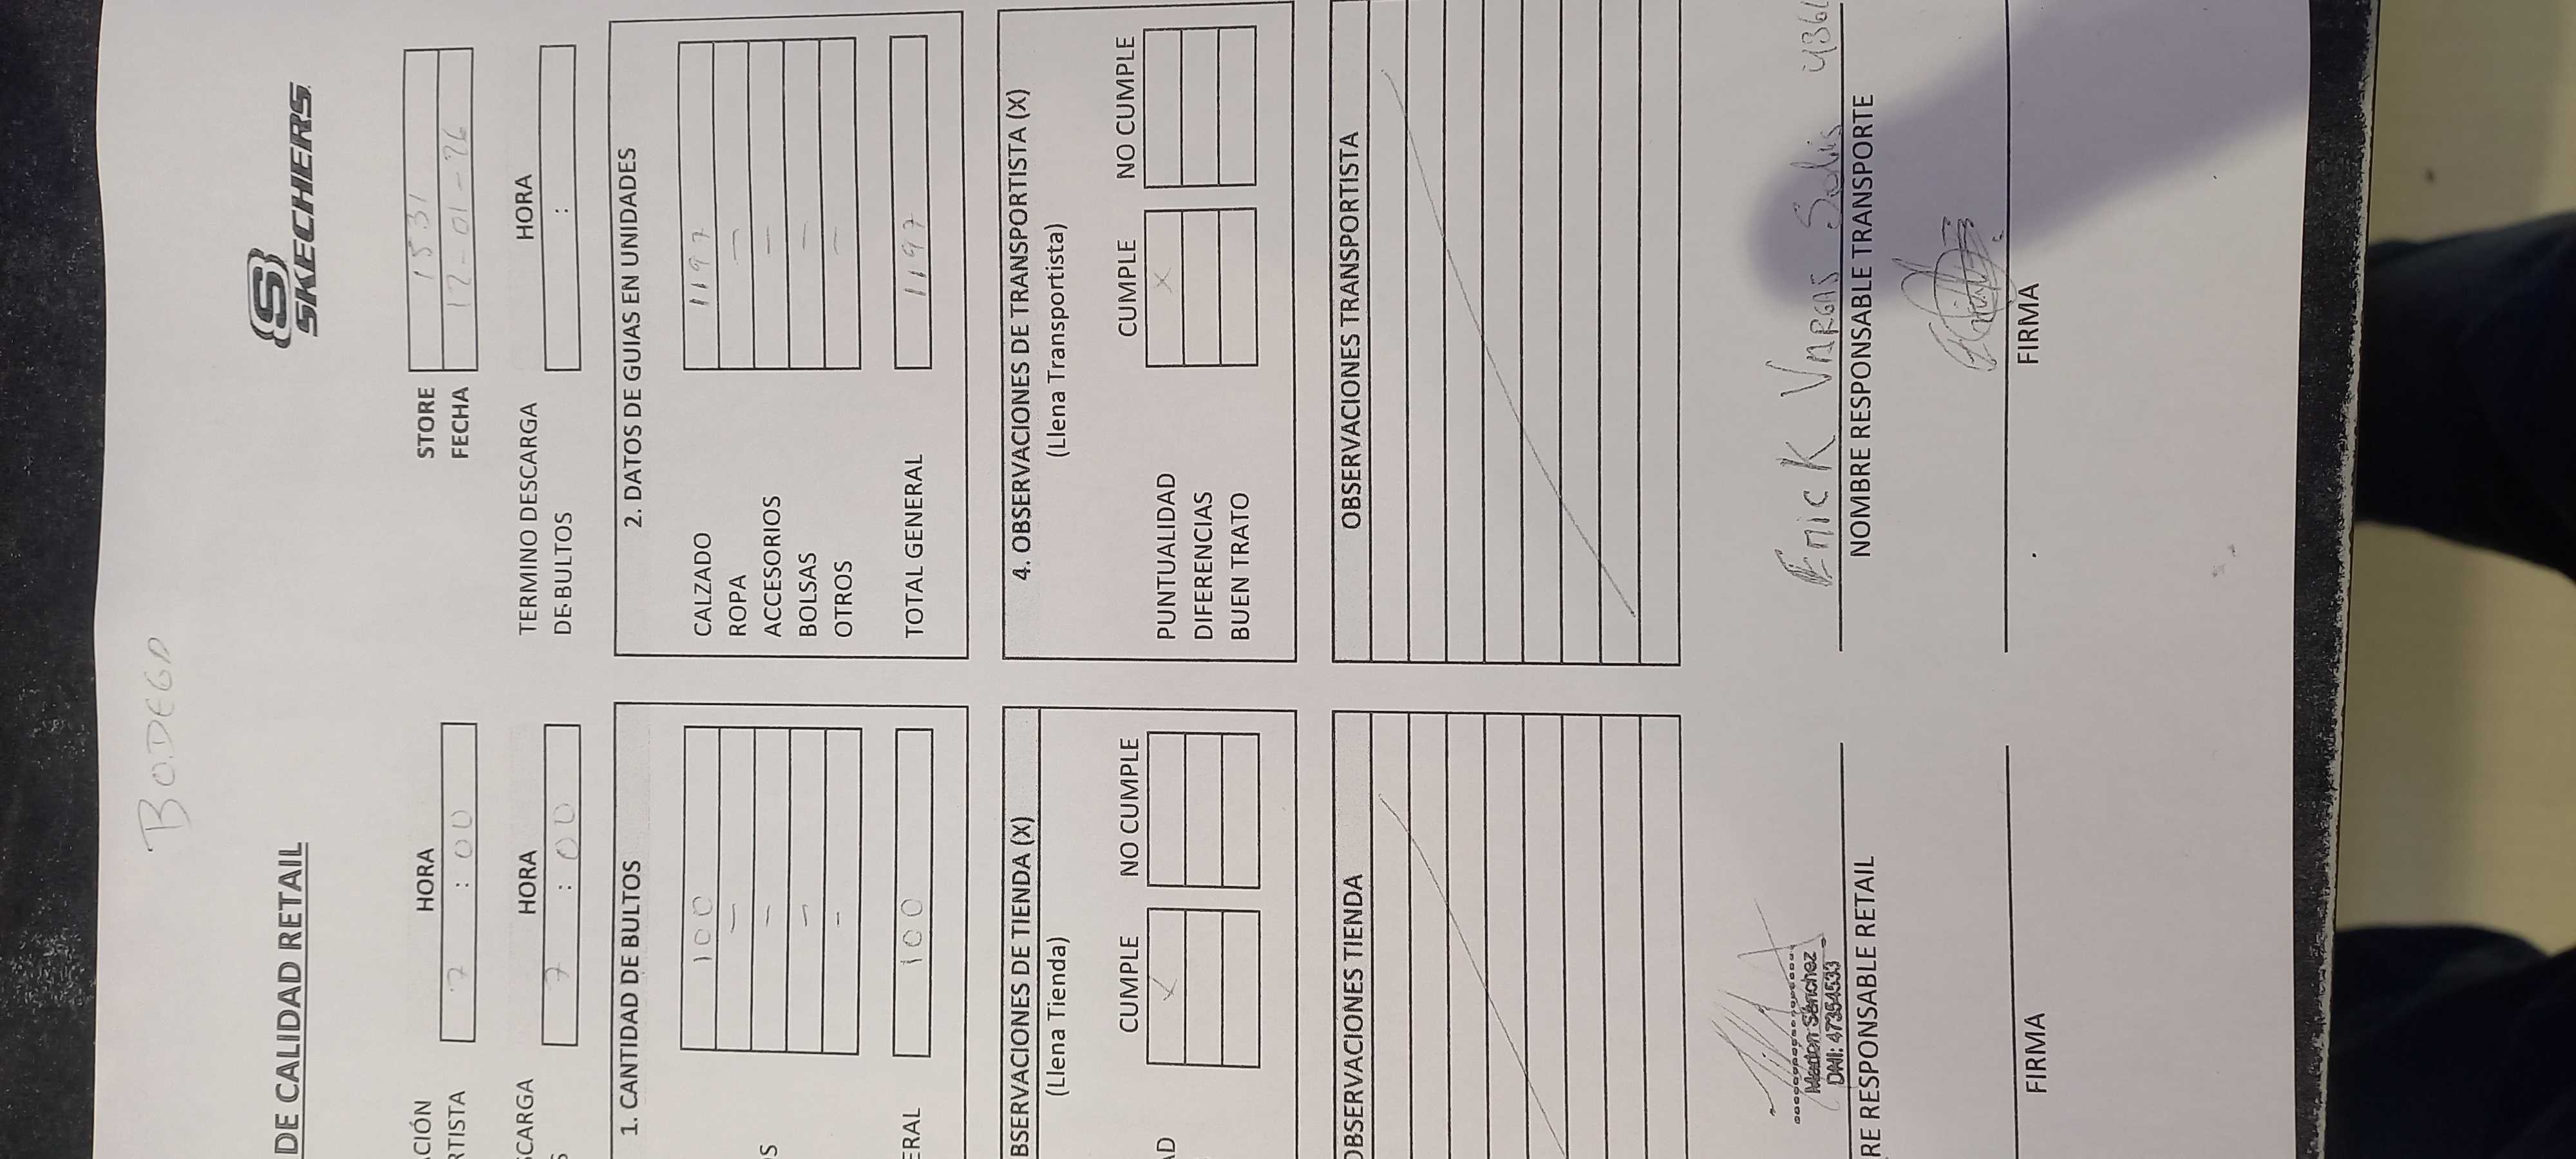 BODEGA
DE CALIDAD RETAIL
SKECHERS
ACIÓN HORA STORE 1531
RTISTA 7 : 00 FECHA 12-01-26
SCARGA HORA TERMINO DESCARGA HORA
S 7 : 00 DE BULTOS :
1. CANTIDAD DE BULTOS
100
-
OS -
-
-
ERAL 100
2. DATOS DE GUIAS EN UNIDADES
CALZADO 1197
ROPA -
ACCESORIOS -
BOLSAS -
OTROS -
TOTAL GENERAL 1197
BSERVACIONES DE TIENDA (X)
(Llena Tienda)
CUMPLE NO CUMPLE
AD X
4. OBSERVACIONES DE TRANSPORTISTA (X)
(Llena Transportista)
CUMPLE NO CUMPLE
PUNTUALIDAD X
DIFERENCIAS
BUEN TRATO
OBSERVACIONES TIENDA
OBSERVACIONES TRANSPORTISTA
Sánchez
DNI: 47354533
RE RESPONSABLE RETAIL
Erick Vargas Solis 436
NOMBRE RESPONSABLE TRANSPORTE
FIRMA
FIRMA